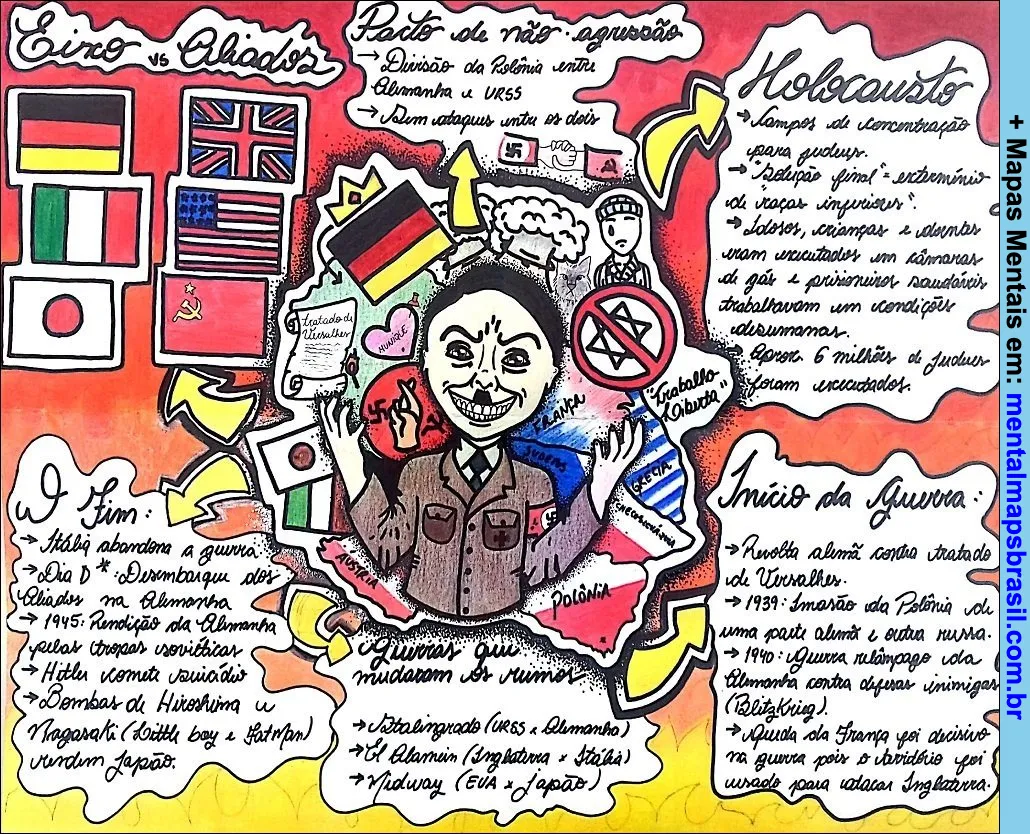 Eixo vs Aliados
Pacto de não-agressão
→ Divisão da Polônia entre
Alemanha e URSS
→ Sem ataques entre os dois
Holocausto
→ Campos de concentração
para judeus.
→ "Solução final" = extermínio
de "raças inferiores".
→ Idosos, crianças e doentes
eram executados em câmaras
de gás e prisioneiros saudáveis
trabalhavam em condições
desumanas.
→ Aprox. 6 milhões de judeus
foram executados.
Tratado de
Versalhes
MUNIQUE
"Trabalho
Liberta"
FRANÇA
SUDETOS
GRÉCIA
ÁUSTRIA
POLÔNIA
O Fim:
→ Itália abandona a guerra
→ Dia D*: Desembarque dos
Aliados na Alemanha
→ 1945: Rendição da Alemanha
pelas tropas soviéticas
→ Hitler comete suicídio
→ Bombas de Hiroshima e
Nagasaki (Little boy e FatMan)
rendem Japão.
Guerras que
mudaram os rumos
→ Stalingrado (URSS x Alemanha)
→ El Alamein (Inglaterra x Itália)
→ Midway (EUA x Japão)
Início da Guerra:
→ Revolta alemã contra tratado
de Versalhes.
→ 1939: Invasão da Polônia de
uma parte alemã e outra russa.
→ 1940: Guerra relâmpago da
Alemanha contra defesas inimigas
(BlitzKrieg).
→ Queda da França foi decisivo
na guerra pois o território foi
usado para atacar Inglaterra.
+ Mapas Mentais em: mentalmapsbrasil.com.br